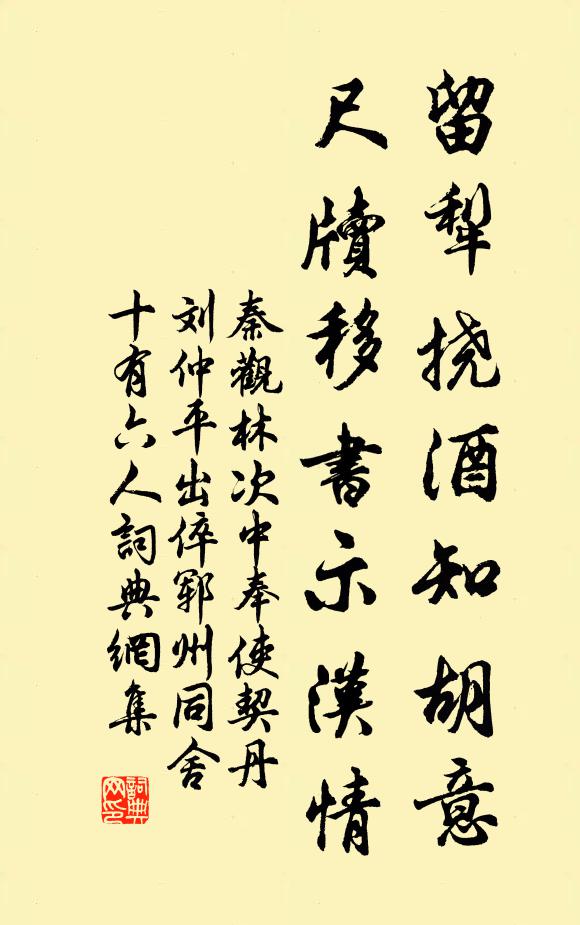 留犁挠酒知胡意
尺牘移書示漢情
秦觀林次中奉使契丹
刘仲平出倅郓州同舍
十有六人詞典網集
詞典
网印